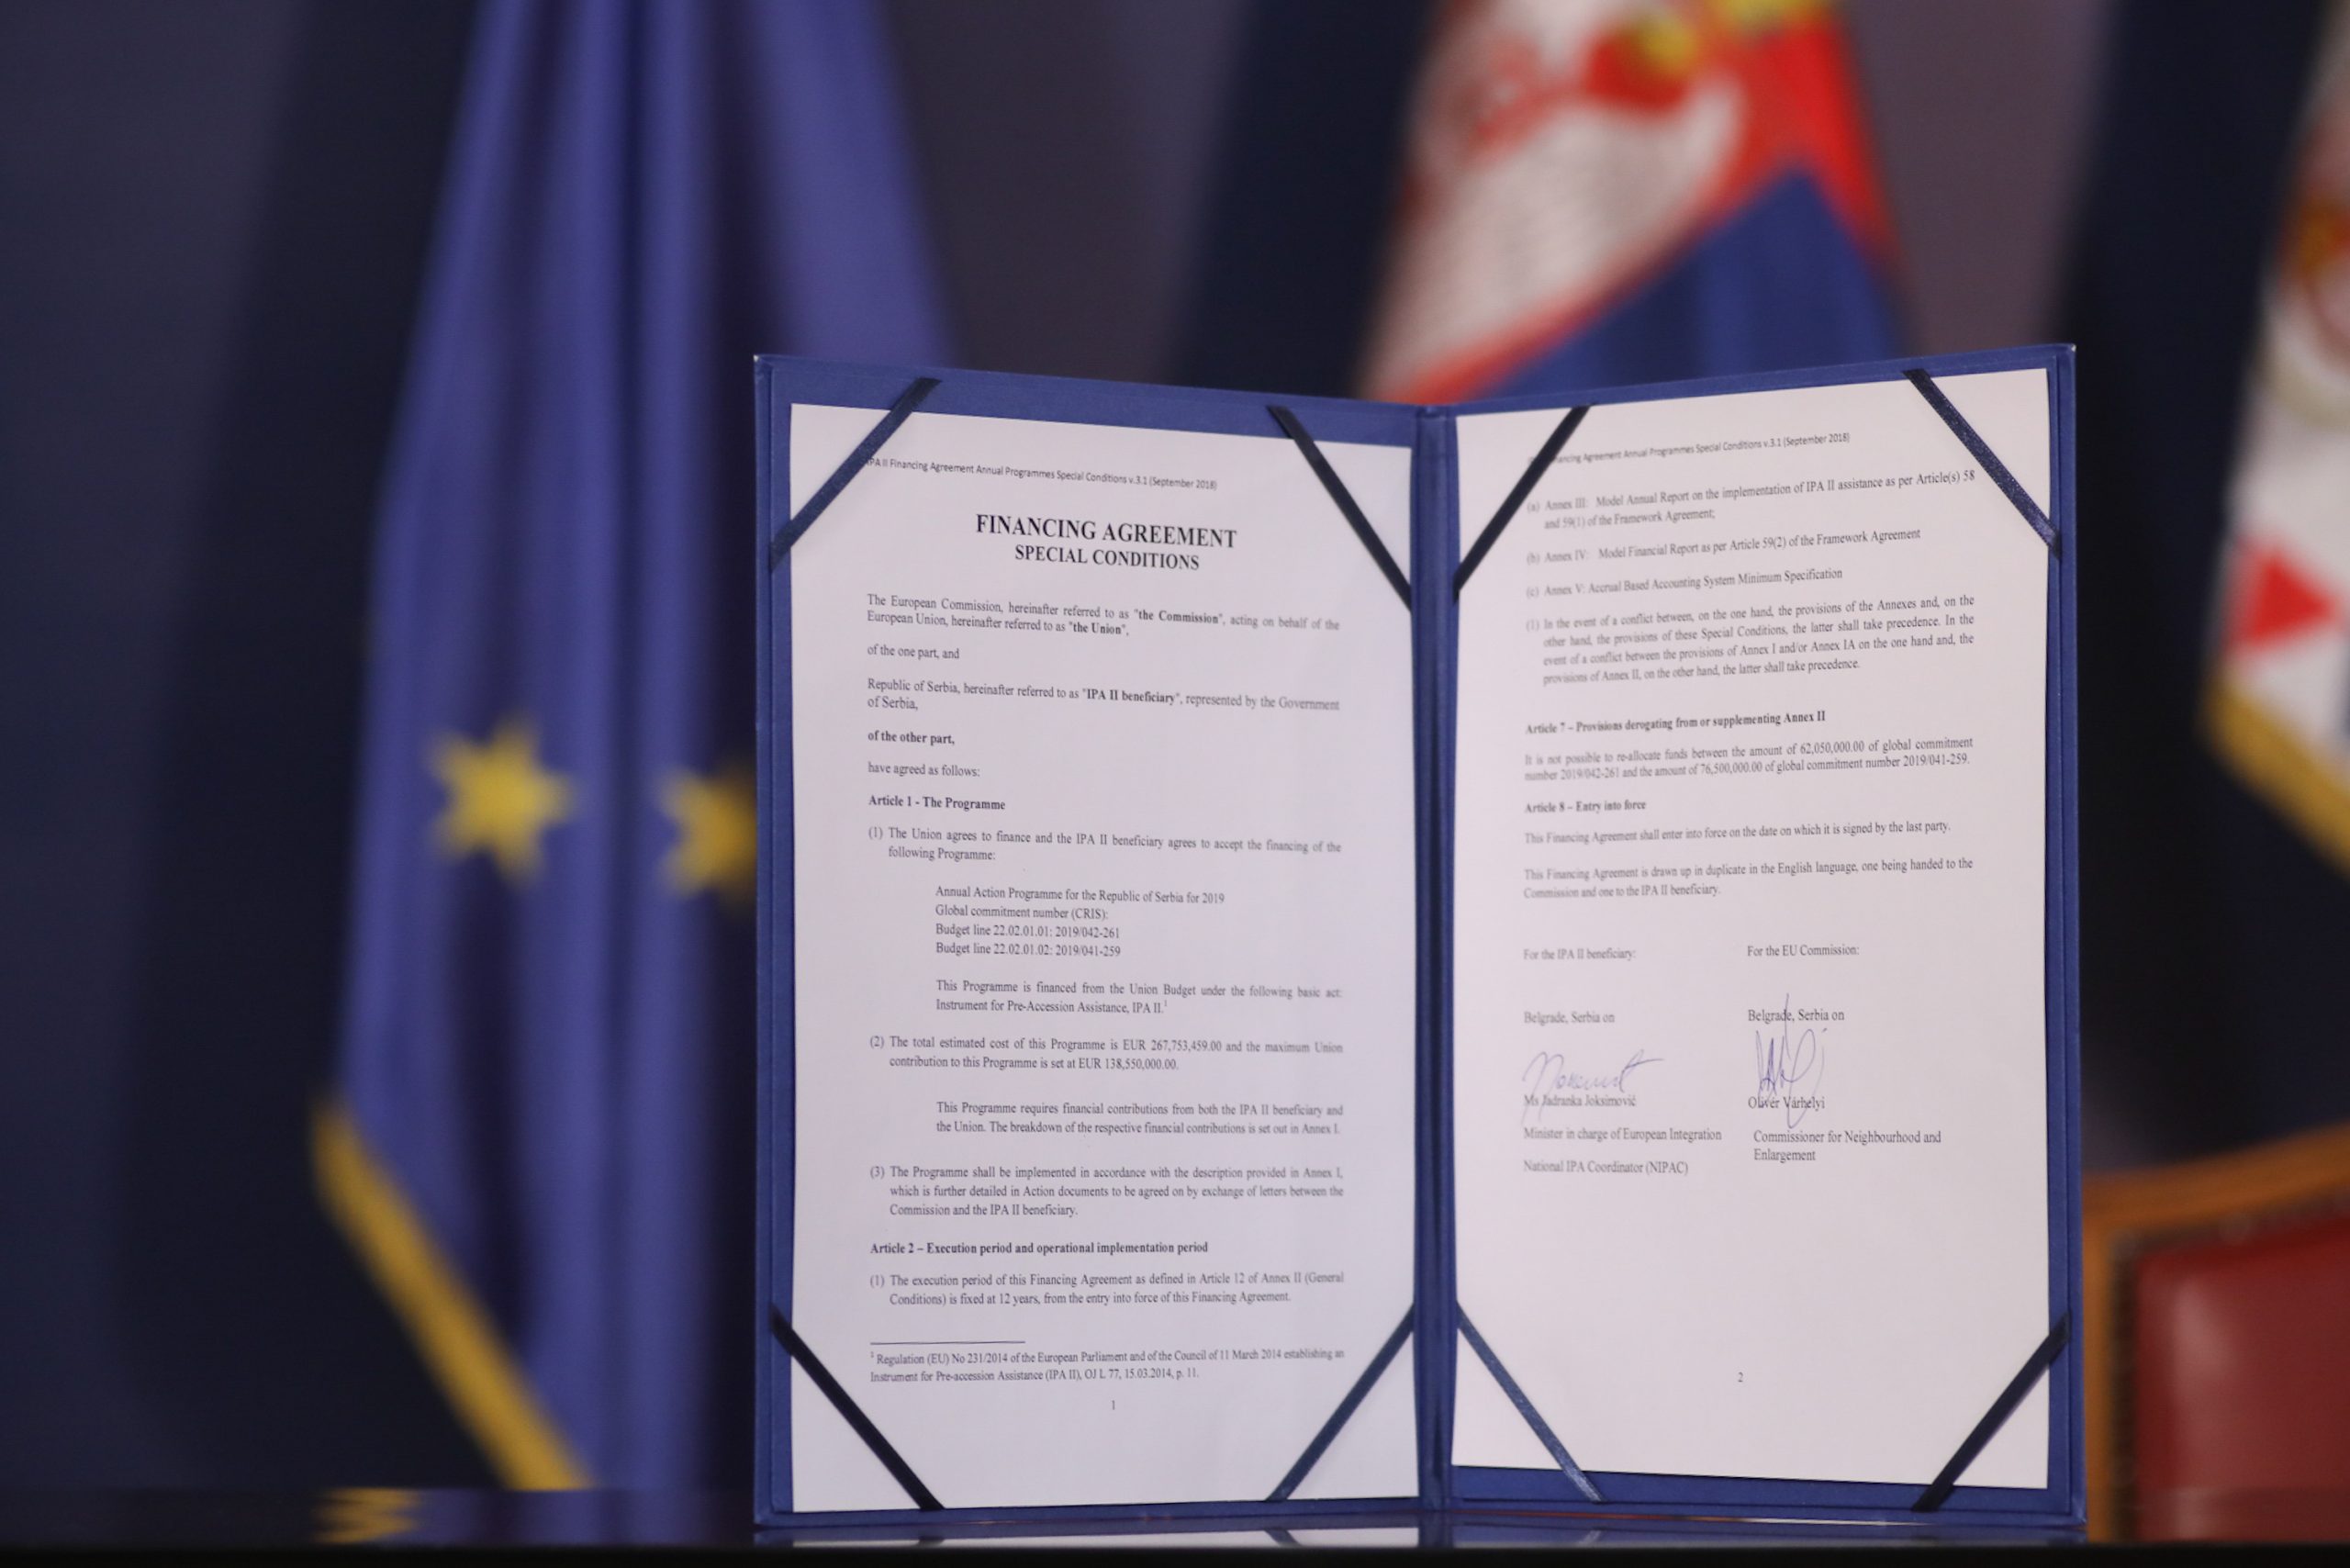 IPA II Financing Agreement Annual Programmes Special Conditions v.3.1 (September 2018)
FINANCING AGREEMENT
SPECIAL CONDITIONS
The European Commission, hereinafter referred to as "the Commission", acting on behalf of the
European Union, hereinafter referred to as "the Union",
of the one part, and
Republic of Serbia, hereinafter referred to as "IPA II beneficiary", represented by the Government
of Serbia,
of the other part,
have agreed as follows:
Article 1 - The Programme
(1) The Union agrees to finance and the IPA II beneficiary agrees to accept the financing of the
following Programme:
Annual Action Programme for the Republic of Serbia for 2019
Global commitment number (CRIS):
Budget line 22.02.01.01: 2019/042-261
Budget line 22.02.01.02: 2019/041-259
This Programme is financed from the Union Budget under the following basic act:
Instrument for Pre-Accession Assistance, IPA II.1
(2) The total estimated cost of this Programme is EUR 267,753,459.00 and the maximum Union
contribution to this Programme is set at EUR 138,550,000.00.
This Programme requires financial contributions from both the IPA II beneficiary and
the Union. The breakdown of the respective financial contributions is set out in Annex I.
(3) The Programme shall be implemented in accordance with the description provided in Annex I,
which is further detailed in Action documents to be agreed on by exchange of letters between the
Commission and the IPA II beneficiary.
Article 2 – Execution period and operational implementation period
(1) The execution period of this Financing Agreement as defined in Article 12 of Annex II (General
Conditions) is fixed at 12 years, from the entry into force of this Financing Agreement.
1 Regulation (EU) No 231/2014 of the European Parliament and of the Council of 11 March 2014 establishing an
Instrument for Pre-accession Assistance (IPA II), OJ L 77, 15.03.2014, p. 11.
1
Financing Agreement Annual Programmes Special Conditions v.3.1 (September 2018)
(a) Annex III: Model Annual Report on the implementation of IPA II assistance as per Article(s) 58
and 59(1) of the Framework Agreement;
(b) Annex IV: Model Financial Report as per Article 59(2) of the Framework Agreement
(c) Annex V: Accrual Based Accounting System Minimum Specification
(1) In the event of a conflict between, on the one hand, the provisions of the Annexes and, on the
other hand, the provisions of these Special Conditions, the latter shall take precedence. In the
event of a conflict between the provisions of Annex I and/or Annex IA on the one hand and, the
provisions of Annex II, on the other hand, the latter shall take precedence.
Article 7 – Provisions derogating from or supplementing Annex II
It is not possible to re-allocate funds between the amount of 62,050,000.00 of global commitment
number 2019/042-261 and the amount of 76,500,000.00 of global commitment number 2019/041-259.
Article 8 – Entry into force
This Financing Agreement shall enter into force on the date on which it is signed by the last party.
This Financing Agreement is drawn up in duplicate in the English language, one being handed to the
Commission and one to the IPA II beneficiary.
For the IPA II beneficiary:
For the EU Commission:
Belgrade, Serbia on
Belgrade, Serbia on
Ms Jadranka Joksimović
Olivér Várhelyi
Minister in charge of European Integration
Commissioner for Neighbourhood and
Enlargement
National IPA Coordinator (NIPAC)
2